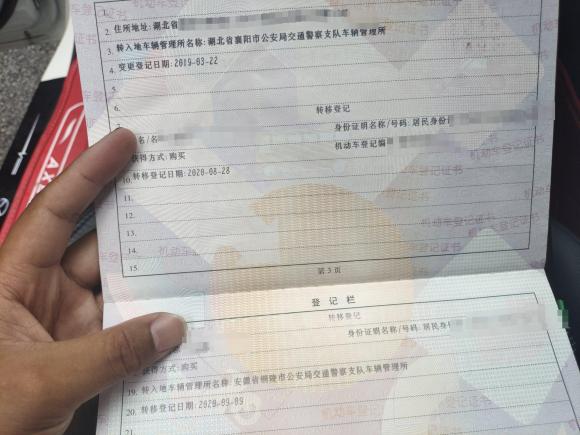 1.
2. 住所地址: 湖北省
3. 转入地车辆管理所名称: 湖北省襄阳市公安局交通警察支队车辆管理所
4. 变更登记日期: 2019-03-22
5.
6. 转移登记
7. 名/名 身份证明名称/号码: 居民身份
获得方式: 购买 机动车登记编
10. 转移登记日期: 2020-08-28
11.
12.
13.
14.
15.
第 3 页
登 记 栏
转移登记
身份证明名称/号码: 居民身
获得方式: 购买
19. 转入地车辆管理所名称: 安徽省铜陵市公安局交通警察支队车辆管理所
20. 转移登记日期: 2020-09-09
21.
机动车登记证书